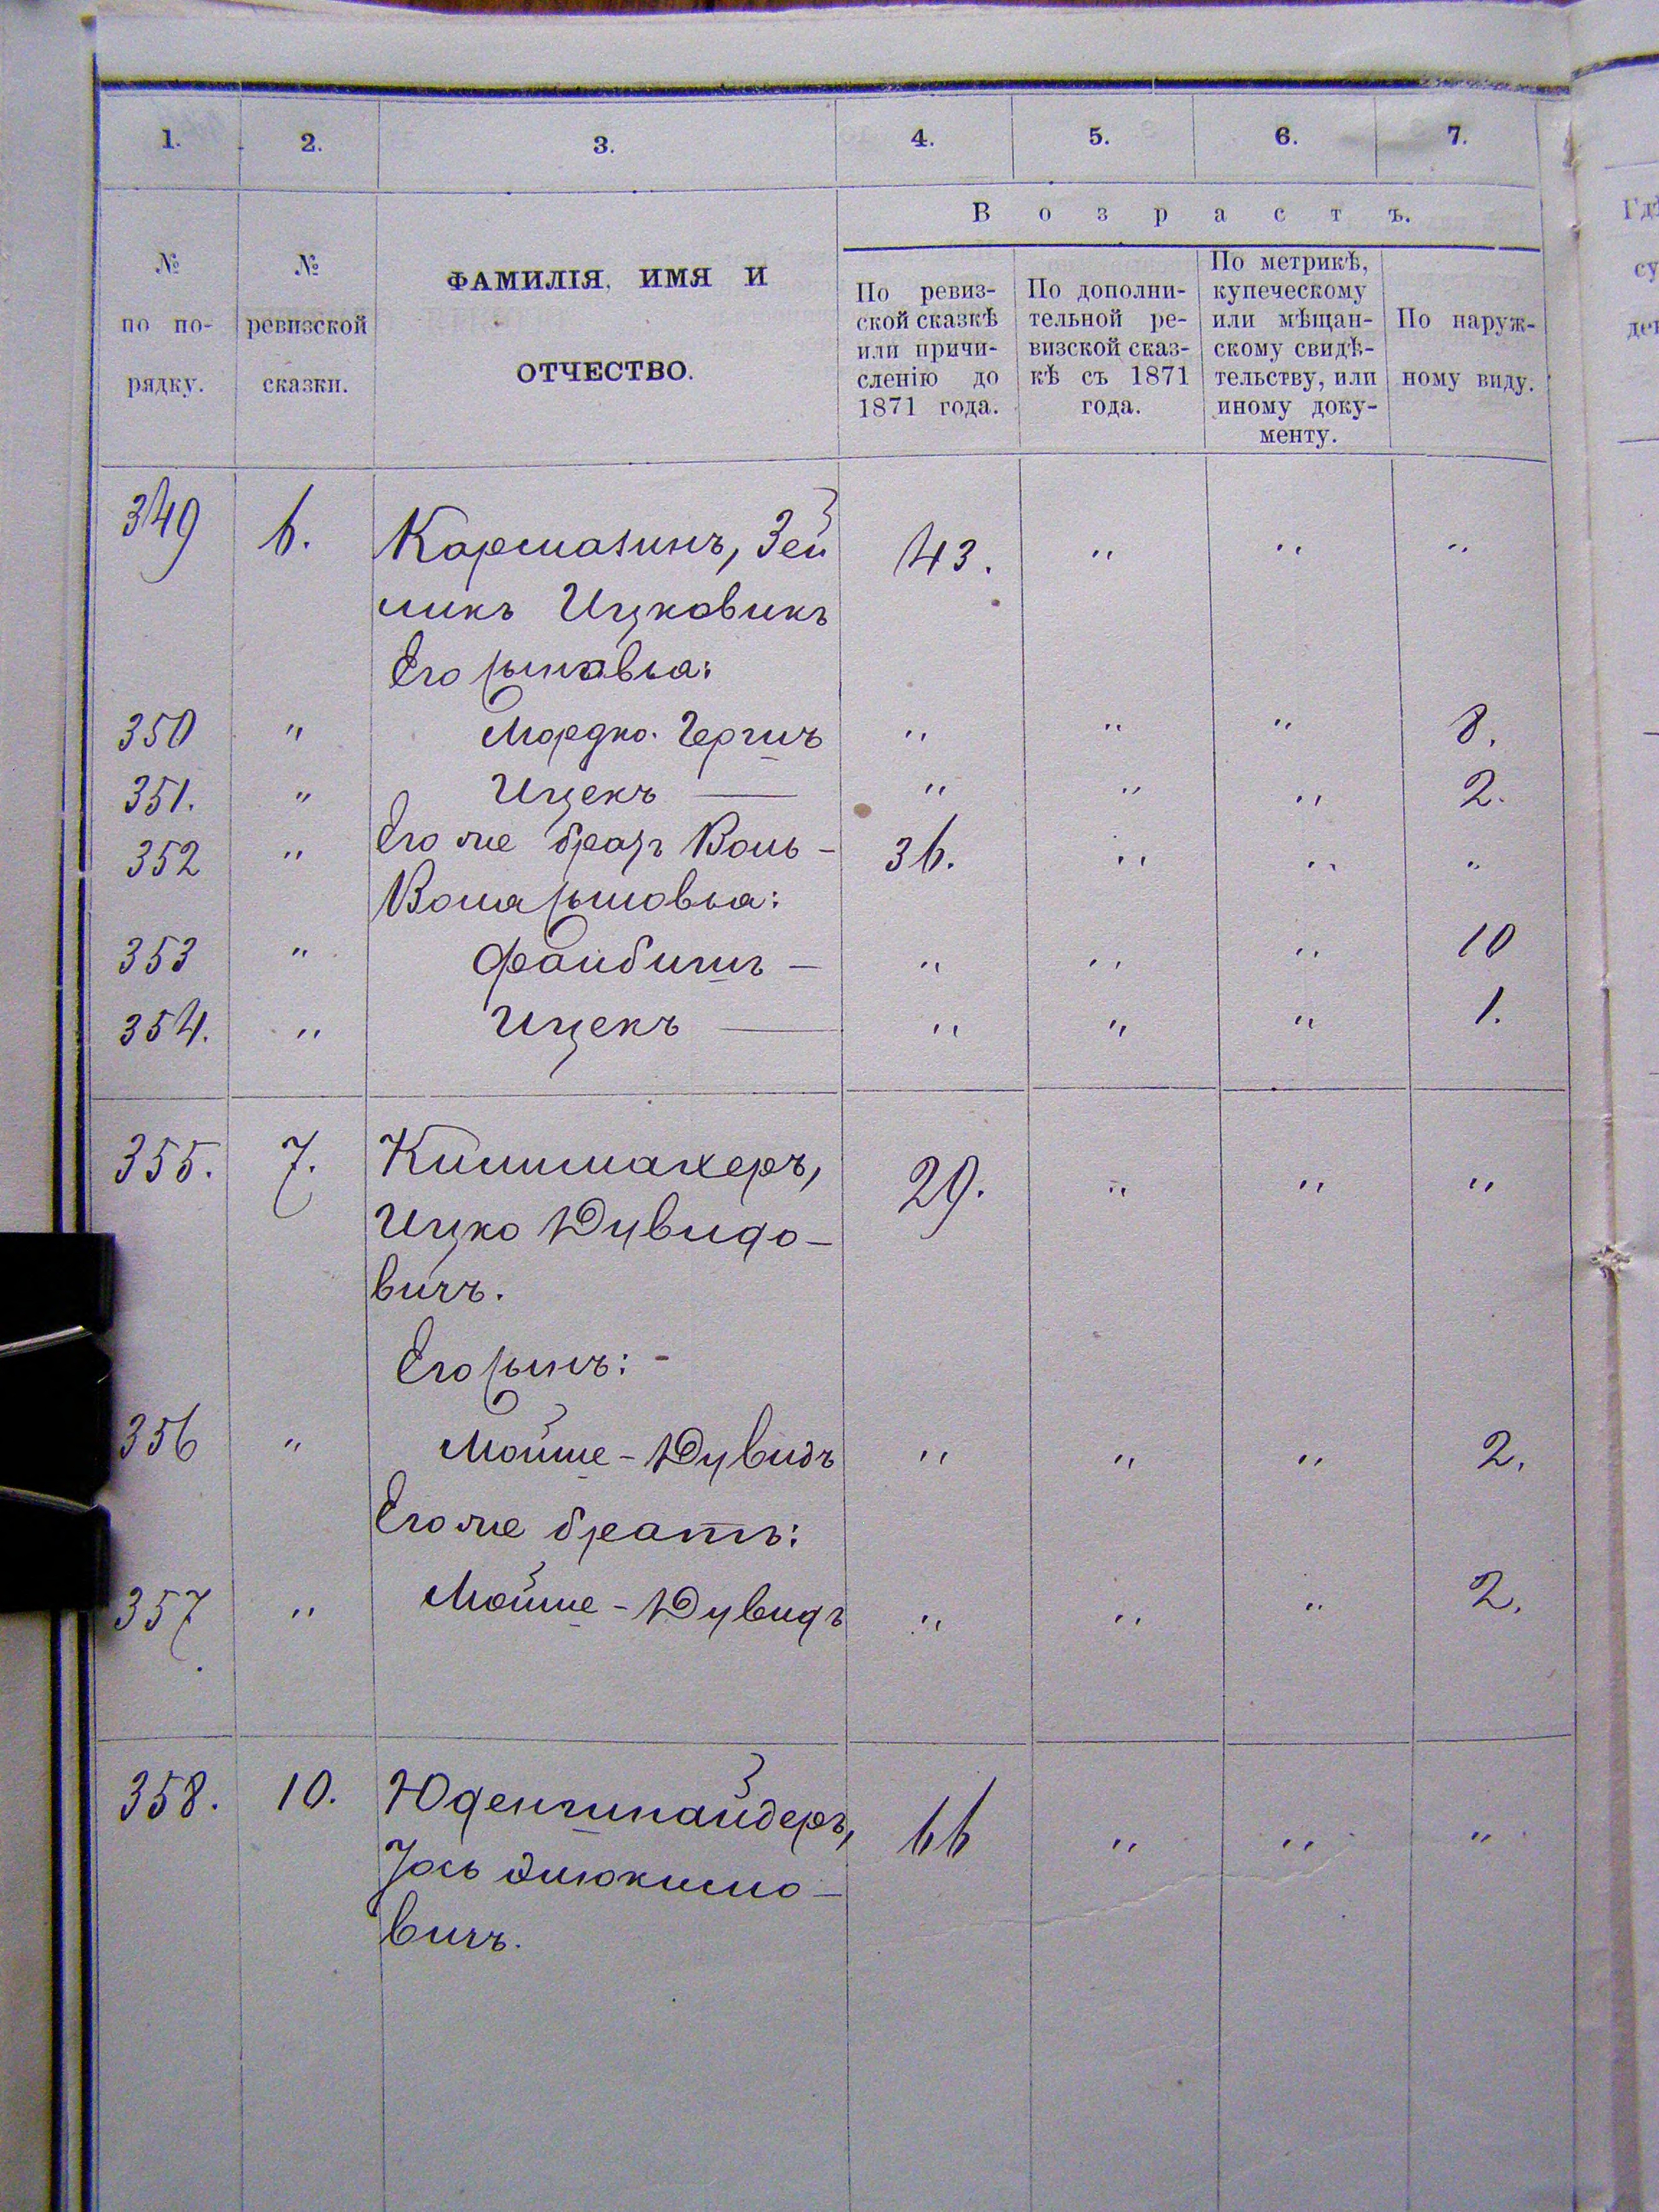 1. 2. 3. 4. 5. 6. 7.
№ по порядку.
№ ревизской сказки.
ФАМИЛІЯ, ИМЯ И
ОТЧЕСТВО.
Возрастъ.
По ревиз-
ской сказкѣ
или причи-
сленію до
1871 года.
По дополни-
тельной ре-
визской сказ-
кѣ съ 1871
года.
По метрикѣ,
купеческому
или мѣщан-
скому свидѣ-
тельству, или
иному доку-
менту.
По наруж-
ному виду.
349 6. Кармазинъ, Зей 43. " " "
ликъ Ицковичъ
Его сыновья:
350 " Мордко-Гершъ " " " 8.
351. " Ицекъ — " " " 2.
352 " Его же братъ Воль- 36. " " "
Вола сыновья:
353 " Файбишъ — " " " 10
354. " Ицекъ — " " " 1.
355. 7. Килимахеръ, 29. " " "
Ицко Дувидо-
вичъ.
Его сынъ: -
356 " Мойше-Дувидъ " " " 2.
Его же братъ:
357. " Мойше-Дувидъ " " " 2.
358. 10. Юденшнайдеръ, 66 " " "
Іось
вичъ.